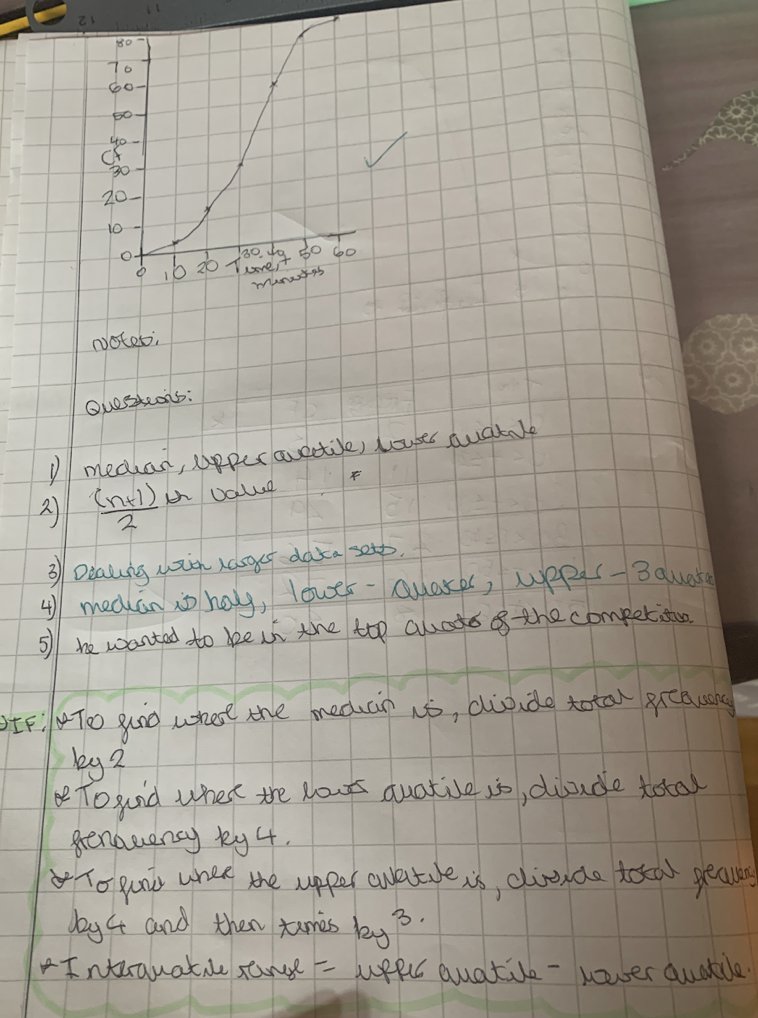 12 11
80
70
60
50
40
Cf
30
20
10
0
0 10 20 30 40 50 60
Time, t
minutes
notes:
Questions:
1) median, upper quartile, lower quatile
2) (n+1)/2 th value
3) Dealing with larger data sets.
4) median is half, lower - quater, upper - 3 quater
5) he wanted to be in the top quater of the competition.
IF: * To find where the median is, divide total frequency
by 2
* To find where the lower quatile is, divide total
frequency by 4.
* To find where the upper quatile is, divide total frequency
by 4 and then times by 3.
* Interquatile range = upper quatile - lower quatile.